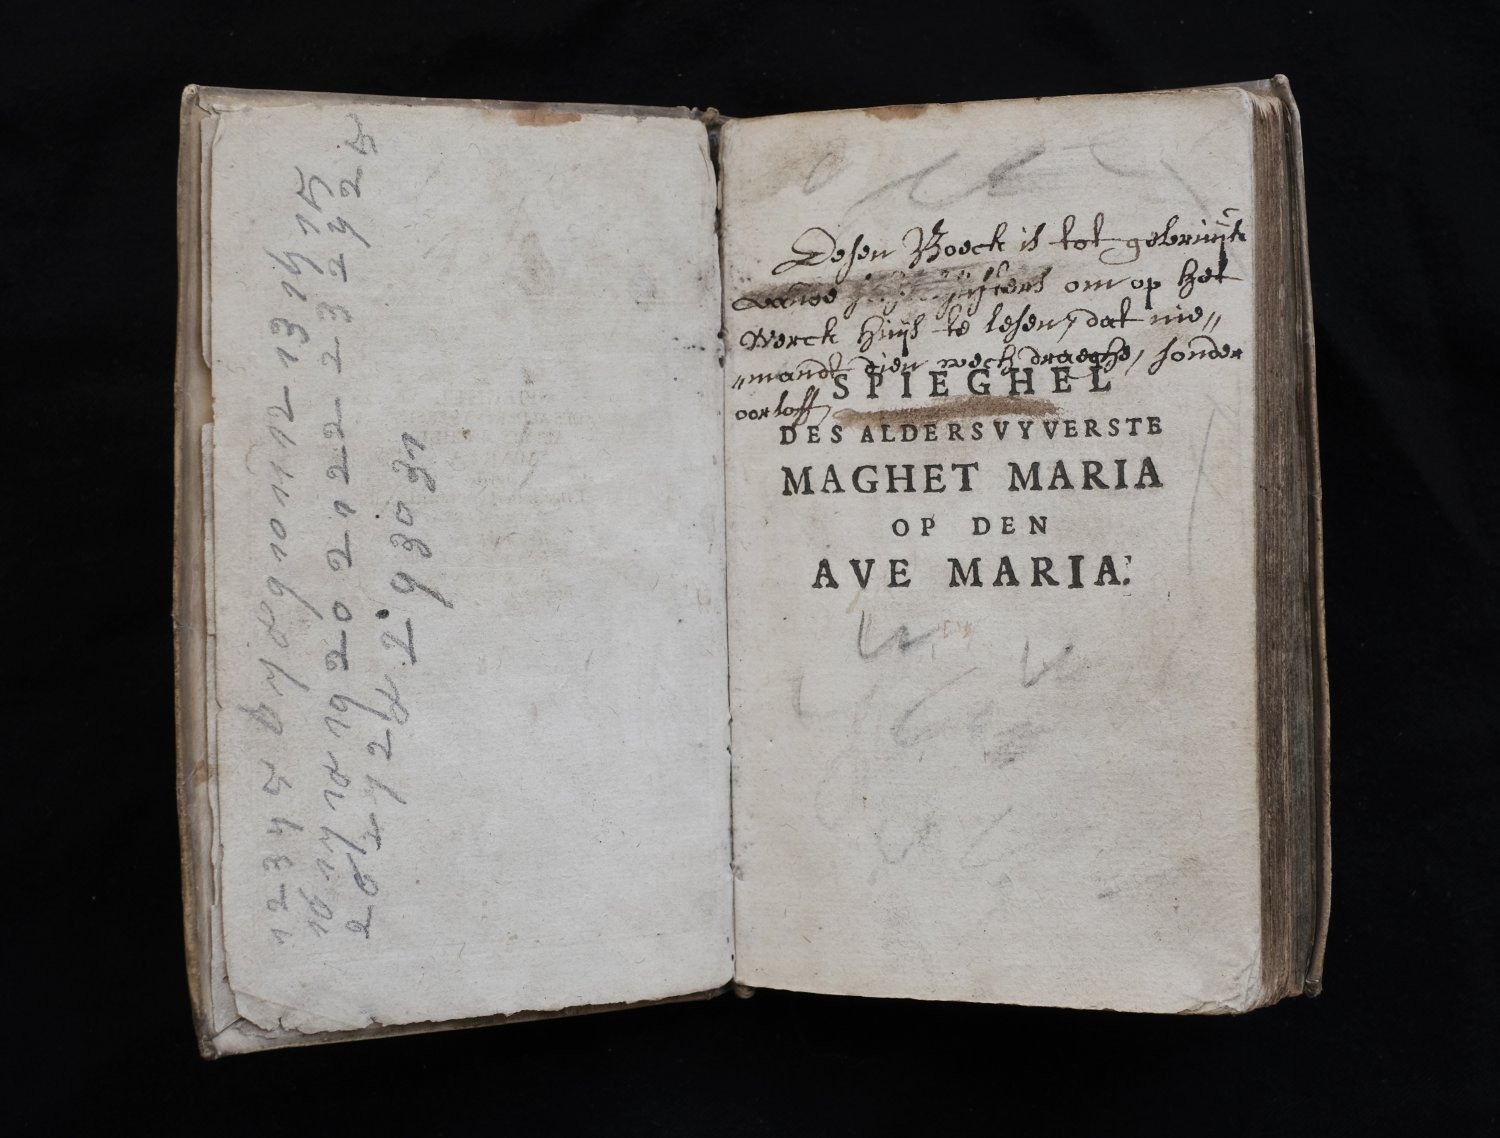 1 2 3 4 5 6 7 8 9 10 11 12 13 14 15
16 17 18 19 20 21 22 23 24 25
26 27 28 29 30 31
Desen Boeck is tot gebruijck
vande susters om op het
werck huijs te lesen, dat nie„
„mandt dien wech draeghe, sonder
oorloff
SPIEGHEL
DES ALDERSUYVERSTE
MAGHET MARIA
OP DEN
AVE MARIA.